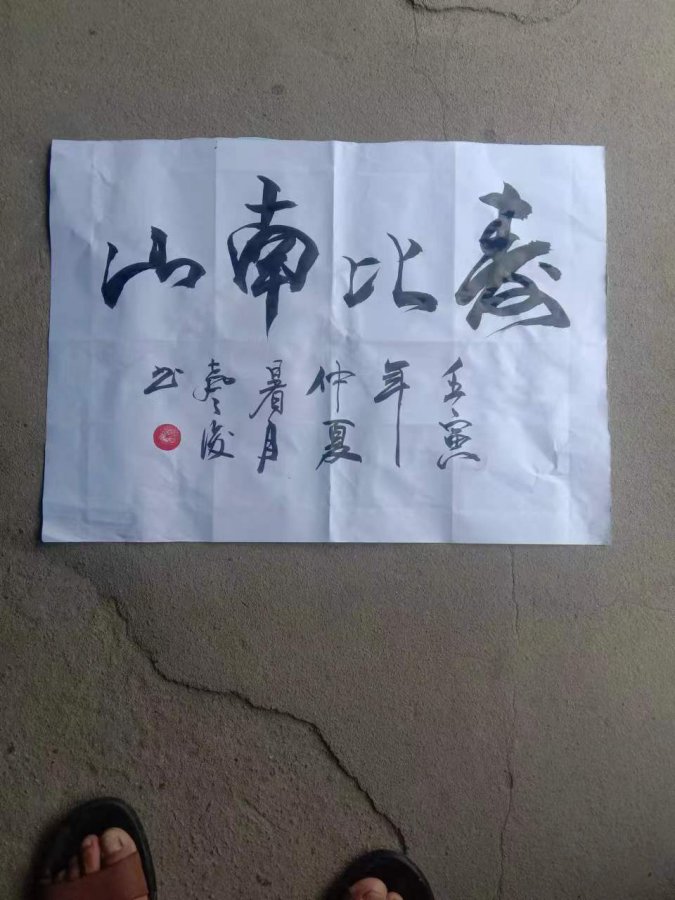 寿比南山
壬寅
年
仲夏
暑月
书